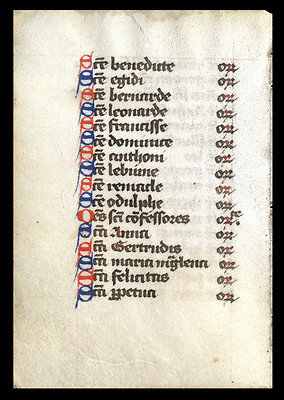 Scē benedicte or
Scē egidi or
Scē bernarde or
Scē leonarde or
Scē francisse or
Scē dominice or
Scē anthoni or
Scē lebuine or
Scē remacle or
Scē odulphe or
Oēs scī cōfessores orate
Scā Anna or
Scā Gertrudis or
Scā maria mgᷓlena or
Scā felicitas or
Scā ꝑpetua or